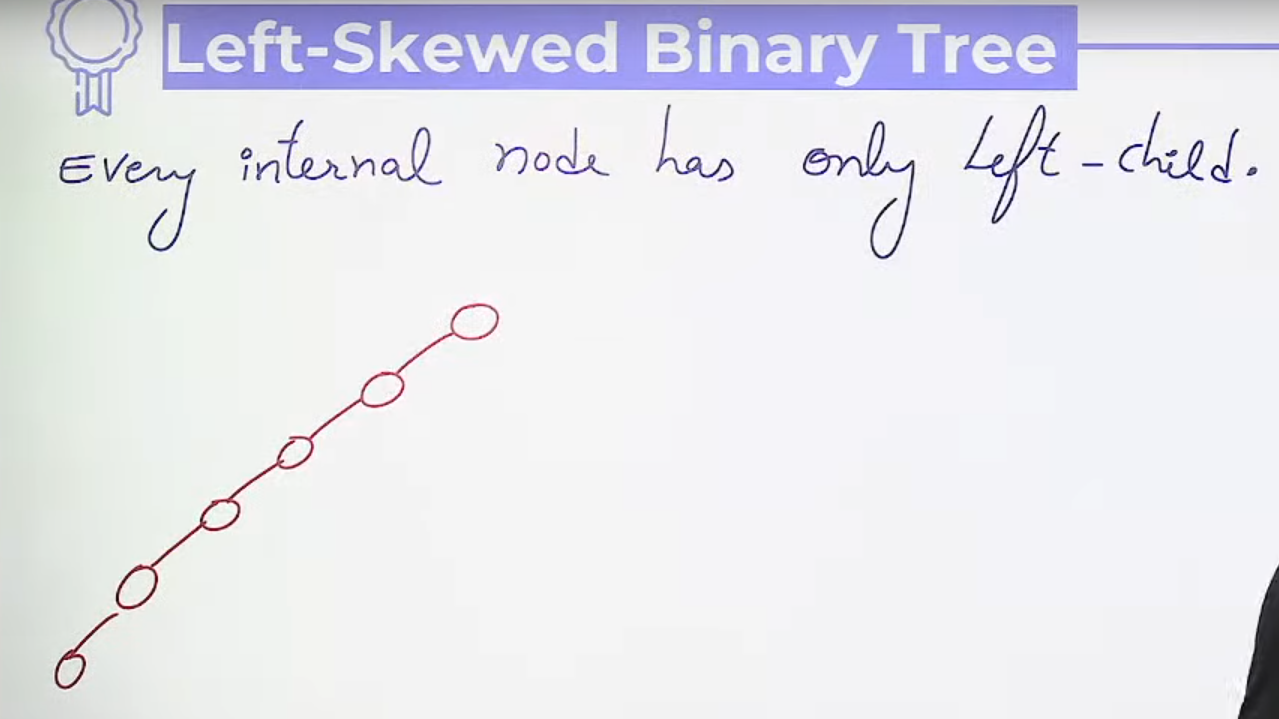 Left-Skewed Binary Tree
Every internal node has only Left-child.